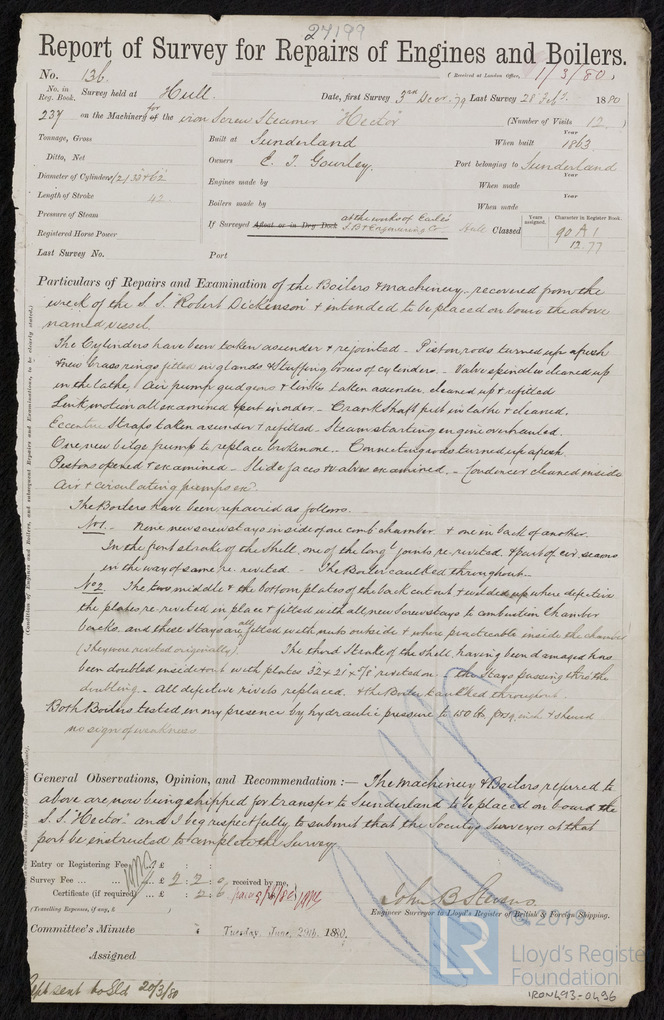 27199
Report of Survey for Repairs of Engines and Boilers.
No. 136. (Received at London Office, 1/3/80)
No. in Reg. Book. Survey held at Hull. Date, first Survey 3rd Decr. 79 Last Survey 28 Feby. 1880
237 on the Machinery of for the iron Screw Steamer "Hector" (Number of Visits 12)
Tonnage, Gross Built at Sunderland When built Year 1863
Ditto, Net Owners E. T. Gourley. Port belonging to Sunderland
Diameter of Cylinders 33 & 62 Engines made by When made Year
Length of Stroke 42 Boilers made by When made Year
Pressure of Steam If Surveyed Afloat or in Dry Dock at the works of Earle's S.B. & Engineering Co Hull Classed Years assigned. Character in Register Book. 90 A 1 12.77
Registered Horse Power
Last Survey No. Port
Particulars of Repairs and Examination of the Boilers & machinery recovered from the
wreck of the S.S. "Robert Dickenson" & intended to be placed on board the above
named vessel.
The Cylinders have been taken asunder & rejointed - Piston rods turned up afresh
& new brass rings fitted in glands & stuffing boxes of cylinders. - Valve spindles cleaned up
in the lathe, Air pump gudgeons & links taken asunder, cleaned up & refitted
Link motion all examined & put in order - Crank Shaft put in lathe & cleaned,
Eccentric Straps taken asunder & refitted - Steam starting engine overhauled.
One new bilge pump to replace broken one. - Connecting rods turned up afresh.
Pistons opened & examined - Slide faces & valves examined. - Condenser cleaned inside
Air & circulating pumps exd.
The Boilers have been repaired as follows.
No 1. - new screw stays inside of one comb. chamber & one in back of another.
In the front strake of the shell, one of the longl. joints re-riveted, & part of cir. seams
in the way of same re-riveted. - The Boiler caulked throughout. -
No 2. The two middle & the bottom plates of the back cut out & where defective
the plates re-riveted in place & fitted with all new Screw stays to combustion Chamber
backs, and these Stays are all fitted with nuts outside & where practicable inside the chamber
(They were riveted originally). The third Strake of the shell, having been damaged has
been doubled inside & out with plates 32 x 21 x riveted on - the stays passing thro the
doubling. - All defective rivets replaced. & the Boiler caulked throughout.
Both Boilers tested in my presence by hydraulic pressure to 150 lbs per sq. inch & shewed
no sign of weakness
General Observations, Opinion, and Recommendation :— The Machinery & Boilers referred to
above are now being shipped for transfer to Sunderland to be placed on board the
S.S. "Hector" and I beg respectfully to submit that the Society's Surveyor at that
port be instructed to complete the Survey.
Entry or Registering Fee .. £ : :
Survey Fee ... ... £ 2 : 2 : 0 received by me,
Certificate (if required) ... £ : 2 : 6
(Travelling Expenses, if any, £ )
John B Stevens.
Engineer Surveyor to Lloyd's Register of British & Foreign Shipping.
Committee's Minute Tuesday, June, 29th, 1880.
Assigned
sent to Sld 20/3/80
© 2019
LR
Lloyd's Register
Foundation
IRON493-0496